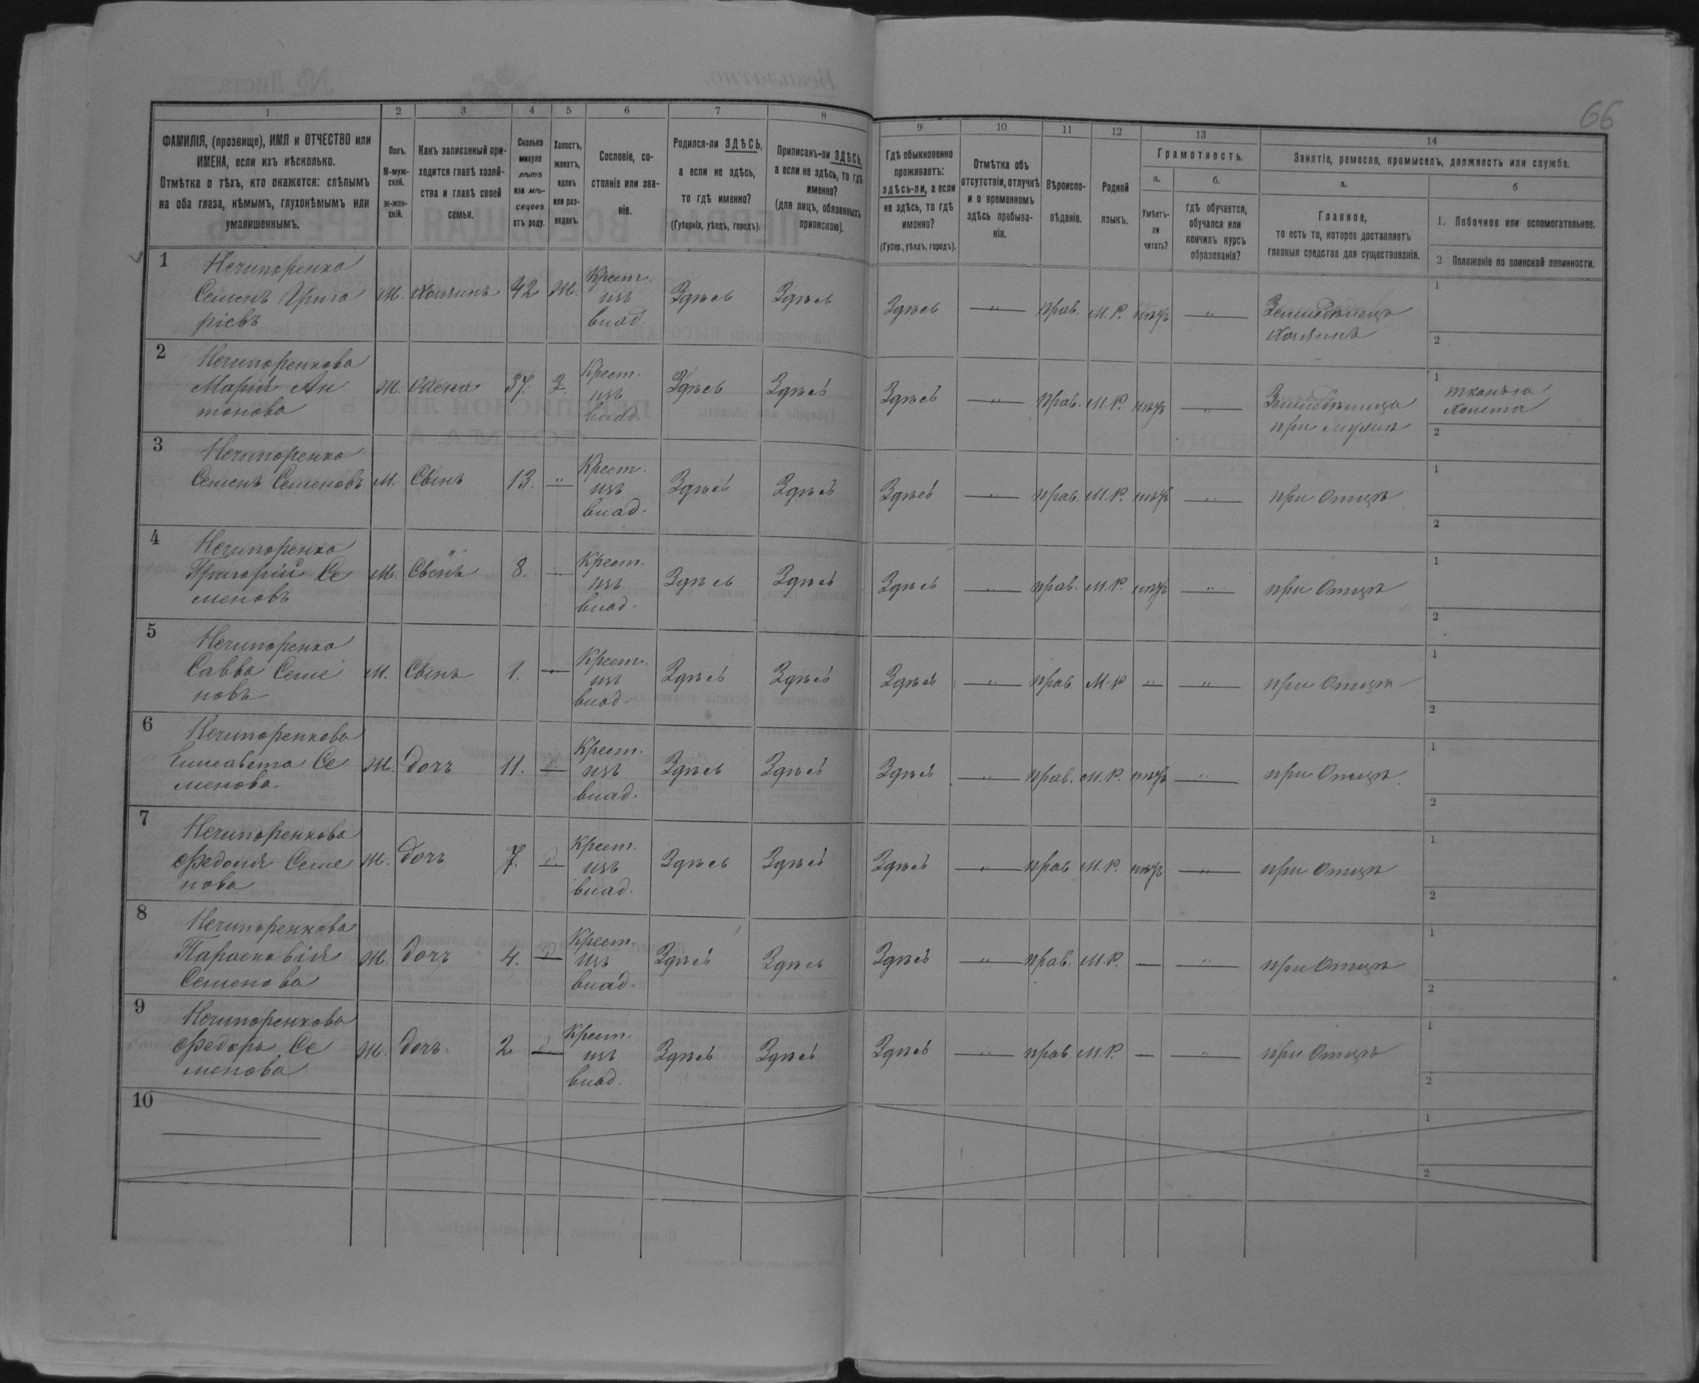 66
1 2 3 4 5 6 7 8 9 10 11 12 13 14
ФАМИЛІЯ, (прозвище), ИМЯ и ОТЧЕСТВО или
ИМЕНА, если ихъ нѣсколько.
Отмѣтка о тѣхъ, кто окажется: слѣпымъ
на оба глаза, нѣмымъ, глухонѣмымъ или
умалишеннымъ.
Полъ.
М-муж-
ской.
Ж-жен-
скій.
Какъ записанный при-
ходится главѣ хозяй-
ства и главѣ своей
семьи.
Сколько
минуло
лѣтъ
или мѣ-
сяцевъ
отъ роду.
Холостъ,
женатъ,
вдовъ
или раз-
веденъ.
Сословіе, со-
стояніе или зва-
ніе.
Родился-ли ЗДѢСЬ,
а если не здѣсь,
то гдѣ именно?
(Губернія, уѣздъ, городъ).
Приписанъ-ли ЗДѢСЬ,
а если не здѣсь, то гдѣ
именно?
(для лицъ, обязанныхъ
припискою).
Гдѣ обыкновенно
проживаетъ:
здѣсь-ли, а если
не здѣсь, то гдѣ
именно?
(Губер., уѣздъ, городъ).
Отмѣтка объ
отсутствіи, отлучкѣ
и о временномъ
здѣсь пребыва-
ніи.
Вѣроиспо-
вѣданіе.
Родной
языкъ.
Грамотность.
а.
Умѣетъ-
ли
читать?
б.
Гдѣ обучается,
обучался или
кончилъ курсъ
образованія?
Занятіе, ремесло, промыселъ, должность или служба.
а.
Главное,
то есть то, которое доставляетъ
главныя средства для существованія.
б
1. Побочное или вспомогательное.
2 Положеніе по воинской повинности.
1
Нечипоренко
Семенъ Григо
рiевъ
М. Хозяинъ 42 Ж.
Крест.
изъ
влад.
Здѣсь Здѣсь Здѣсь — " — прав. М. Р. нѣтъ — " —
Земледѣлецъ
хозяинъ
1
2
2
Нечипоренкова
Марія Ан
тонова
Ж. Жена 37. З.
Крест.
изъ
влад.
Здѣсь Здѣсь Здѣсь — " — прав. М. Р. нѣтъ — " —
Земледѣлица
при мужѣ
1
2
3
Нечипоренко
Семенъ Семеновъ
М. Сынъ 13. "
Крест.
изъ
влад.
Здѣсь Здѣсь Здѣсь — " — прав. М. Р. нѣтъ — " — при Отцѣ
1
2
4
Нечипоренко
Григорій Се
меновъ
М. Сынъ 8. —
Крест.
изъ
влад.
Здѣсь Здѣсь Здѣсь — " — прав. М. Р. нѣтъ — " — при Отцѣ
1
2
5
Нечипоренко
Савва Семе
новъ
М. Сынъ 1. —
Крест.
изъ
влад.
Здѣсь Здѣсь Здѣсь — " — прав М. Р — " — — " — при Отцѣ
1
2
6
Нечипоренкова
Елисавета Се
менова
Ж. дочь 11. —
Крест.
изъ
влад.
Здѣсь Здѣсь Здѣсь — " — прав. М. Р. нѣтъ — " — при Отцѣ
1
2
7
Нечипоренкова
Ѳедосія Семе
нова
Ж. дочь 7. —
Крест.
изъ
влад.
Здѣсь Здѣсь Здѣсь — " — прав М. Р. нѣтъ — " — при Отцѣ
1
2
8
Нечипоренкова
Параскевія
Семенова
Ж. дочь 4. —
Крест.
изъ
влад.
Здѣсь Здѣсь Здѣсь — " — прав. М. Р. — — " — при Отцѣ
1
2
9
Нечипоренкова
Ѳедора Се
менова
Ж. дочь 2 —
Крест.
изъ
влад.
Здѣсь Здѣсь Здѣсь — " — прав М. Р. — — " — при Отцѣ
1
2
10
1
2